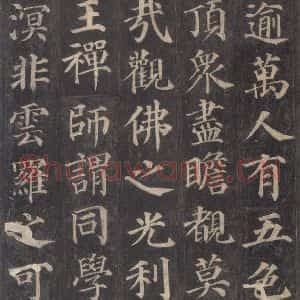 逾萬人有五色
頂衆盡瞻覩莫
哉觀佛之光利
王禪師謂同學
溟非雲羅之可